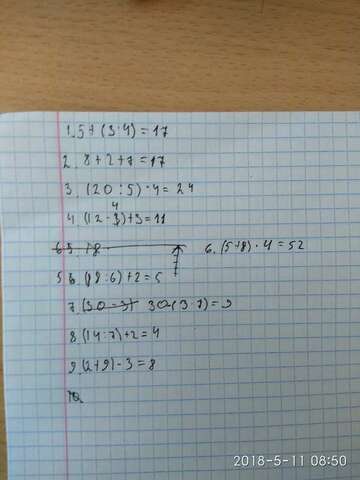 1. 5+(3·4)=17
2. 8+2+7=17
3. (20:5)·4=24
4. (12-4)+3=11
6. (5+8)·4=52
5. (18:6)+2=5
7. 30-(3·7)=9
8. (14:7)+2=4
9. (2+9)-3=8
10.
2018-5-11 08:50